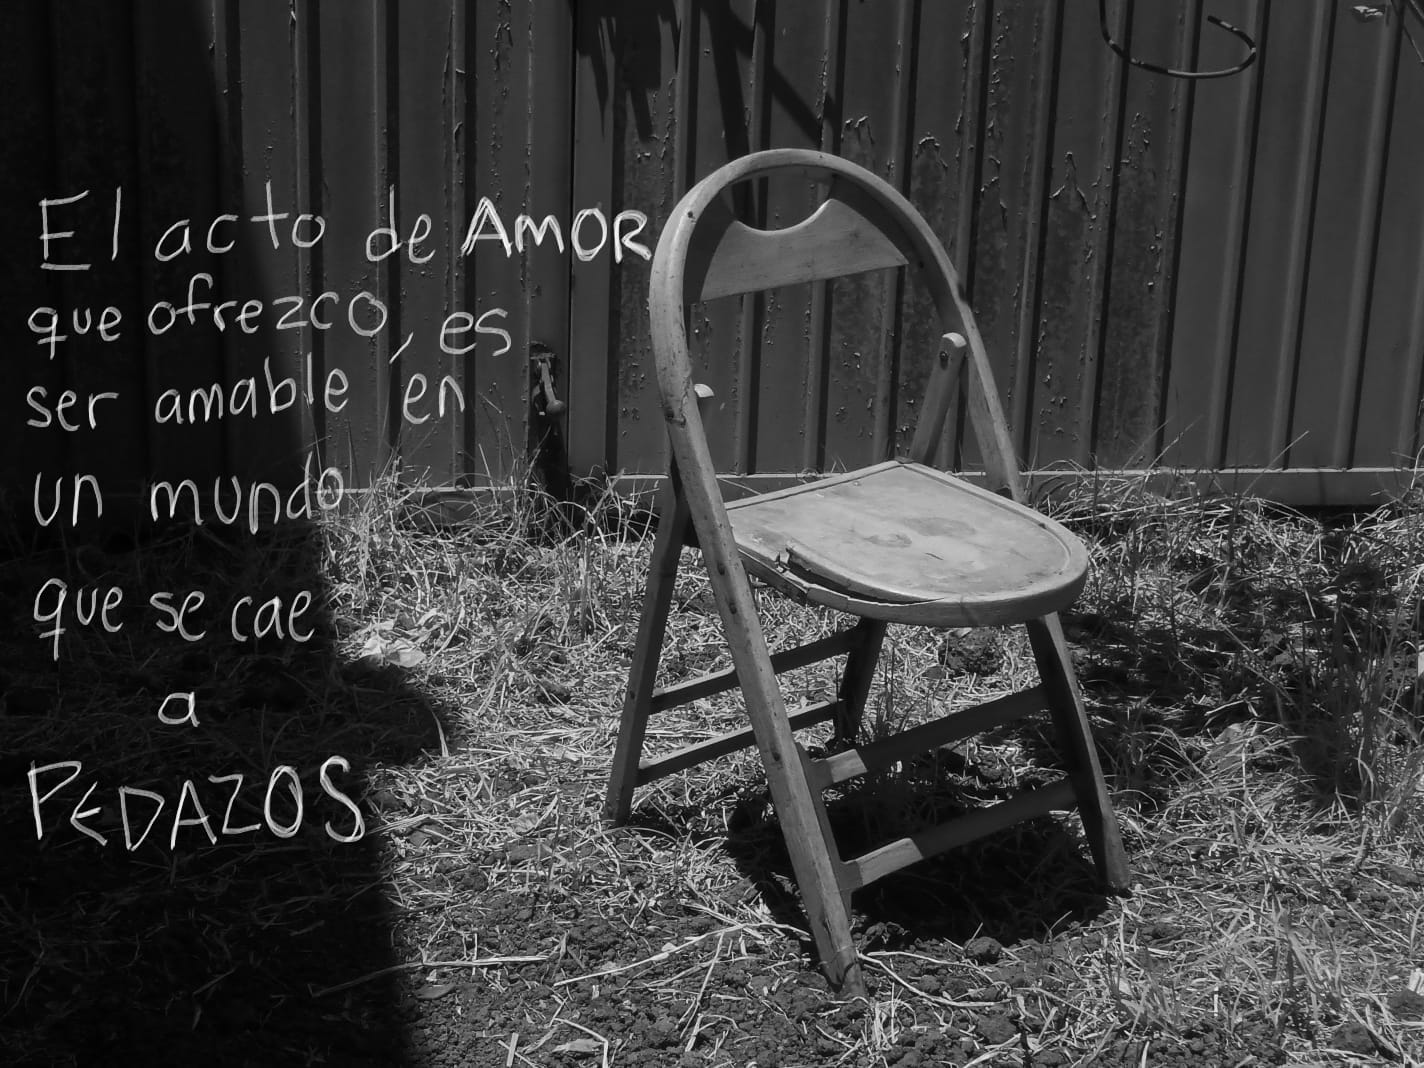 El acto de AMOR
que ofrezco, es
ser amable en
un mundo
que se cae
a
PEDAZOS